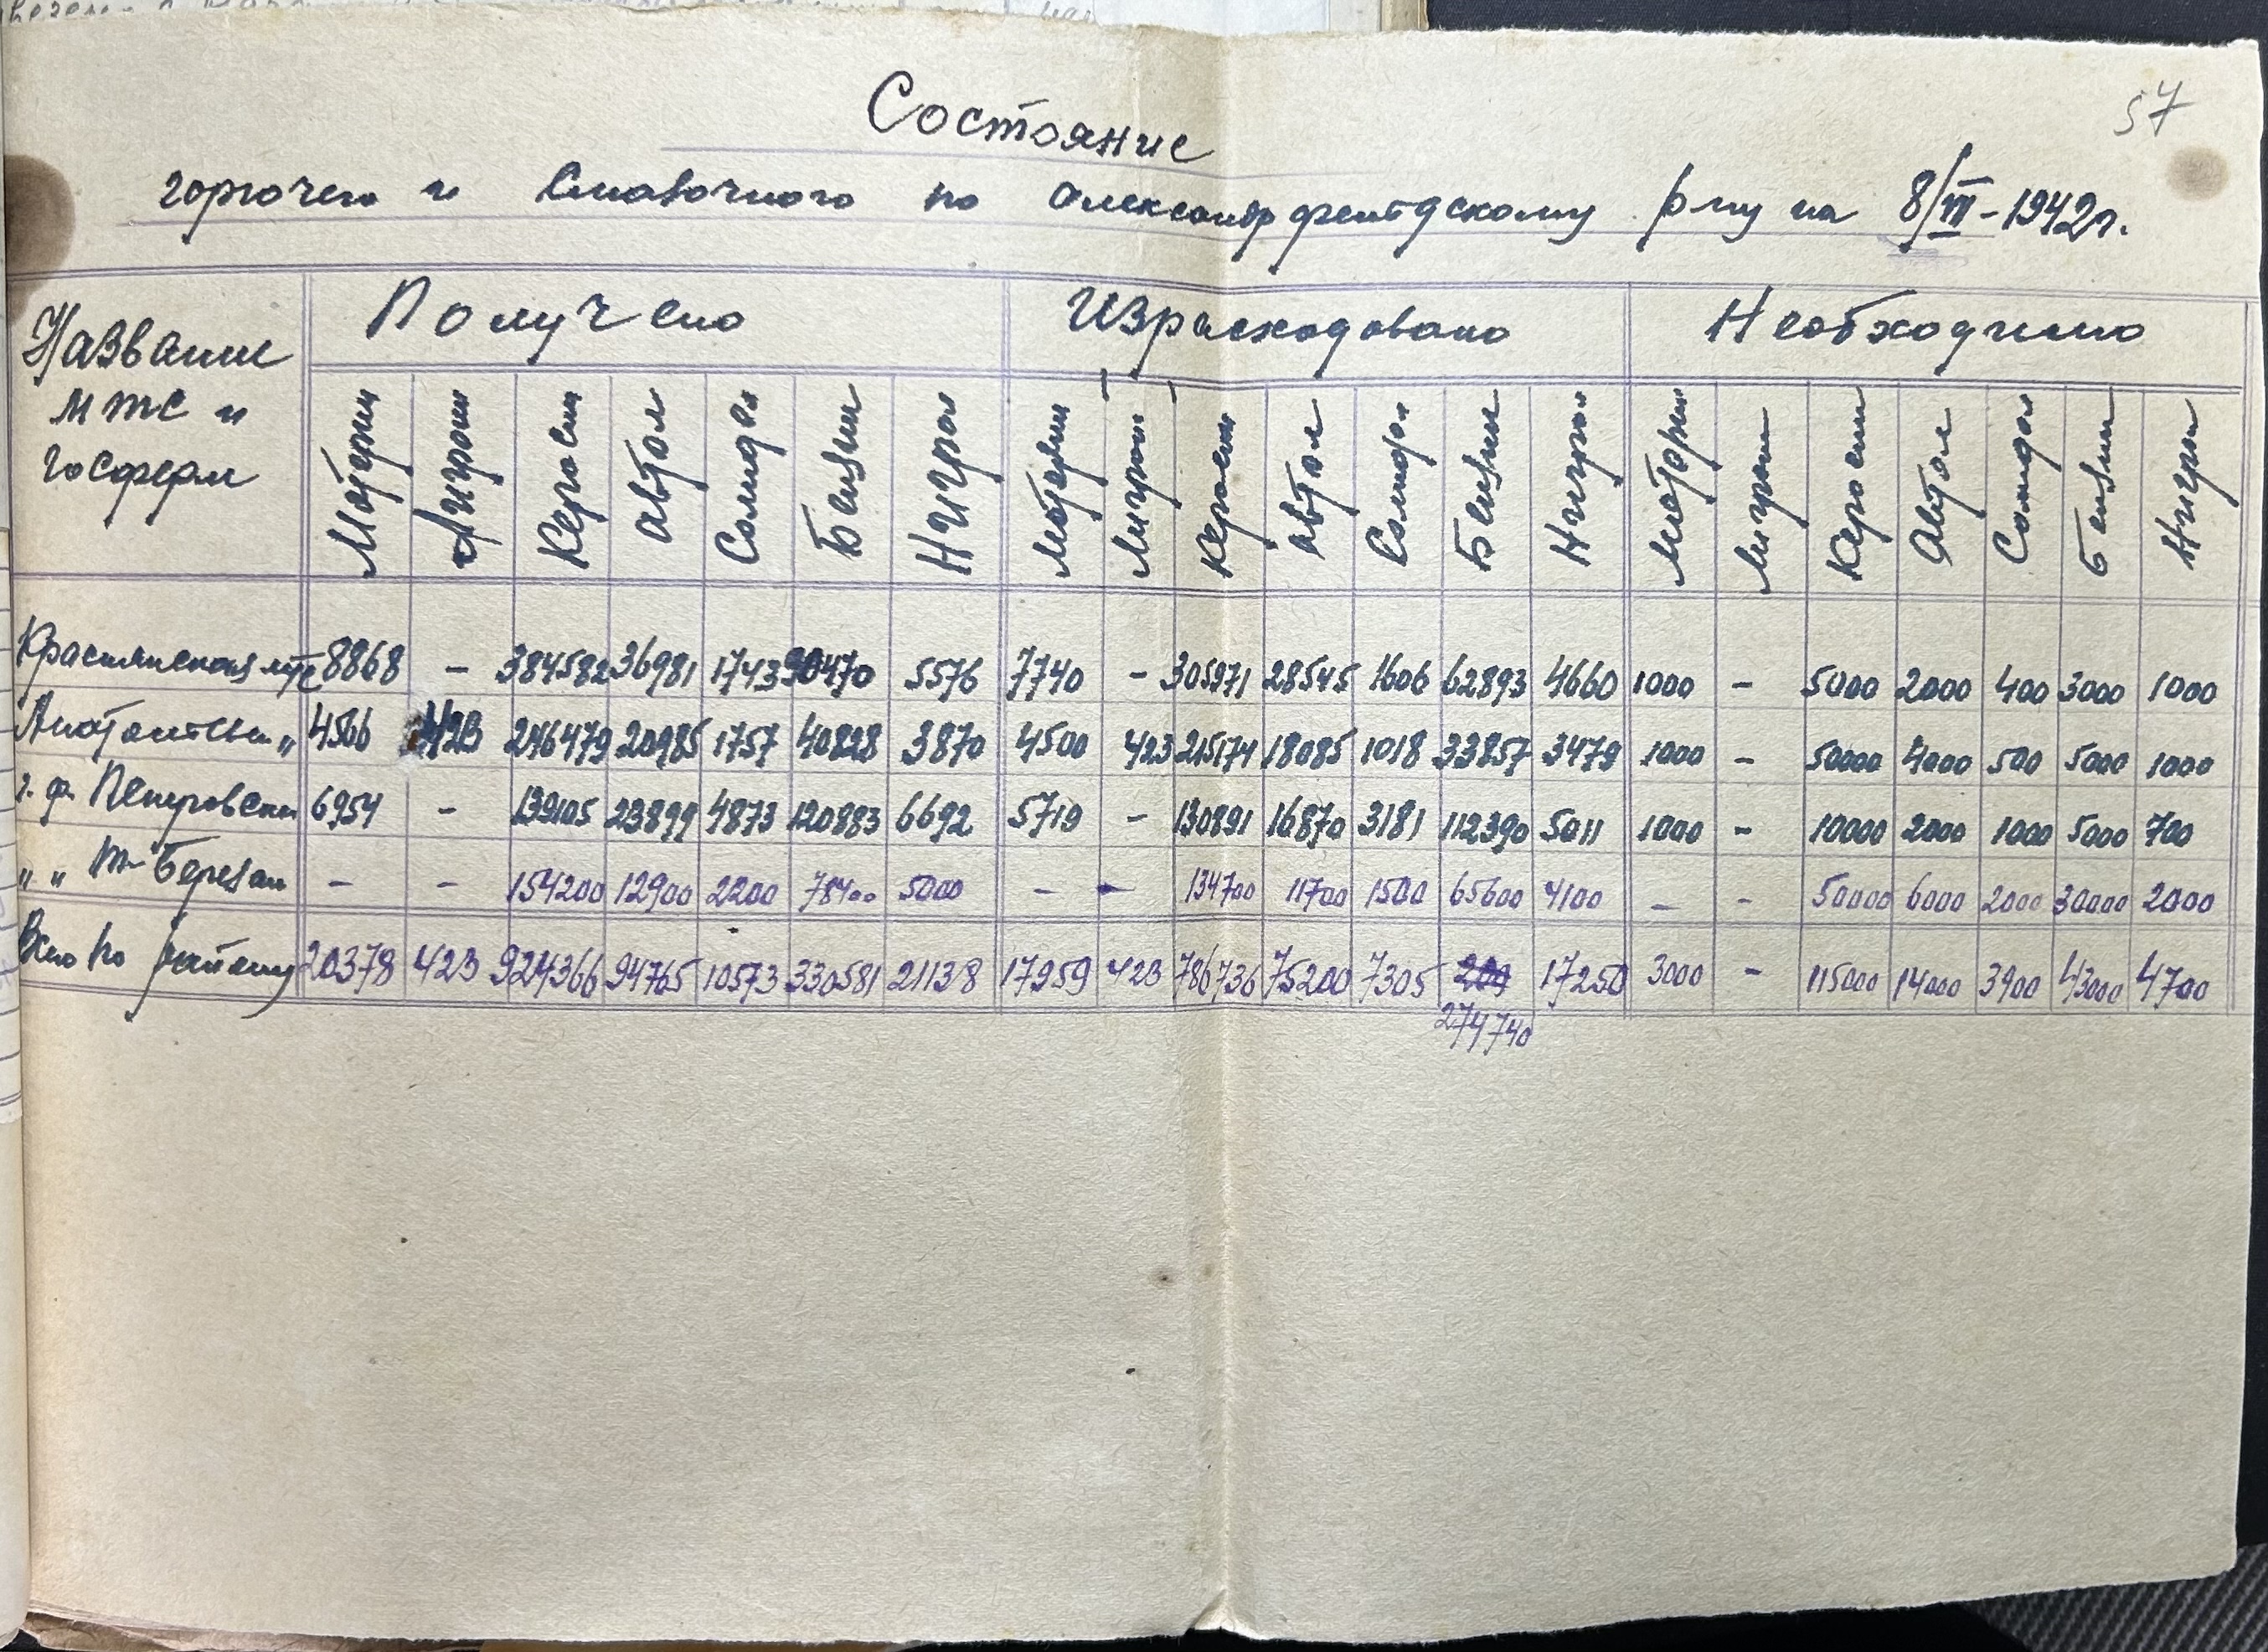 57
Состояние
горючего и смазочного по Александрфельдскому р-ну на 8/VII-1942г.
Название МТС и госферм | Получено | Израсходовано | Необходимо
Моторин | Лигроин | Керосин | Автол | Солидол | Бензин | Нигрол | Моторин | Лигроин | Керосин | Автол | Солидол | Бензин | Нигрол | Моторин | Лигроин | Керосин | Автол | Солидол | Бензин | Нигрол
МТС 8868 - 384582 36981 1743 90470 5576 7740 - 305971 28545 1606 62893 4660 1000 - 5000 2000 400 3000 1000
" 4566 423 246479 20985 1757 40828 3870 4500 423 215174 18085 1018 33857 3479 1000 - 50000 4000 500 5000 1000
г. ф. 6954 - 139105 23899 4873 120883 6692 5719 - 130891 16870 3181 112390 5011 1000 - 10000 2000 1000 5000 700
" " Березан - - 154200 12900 2200 78400 5000 - - 134700 11700 1500 65600 4100 - - 50000 6000 2000 30000 2000
Всего по району 20378 423 924366 94765 10573 330581 21138 17959 423 786736 75200 7305 17250 3000 - 115000 14000 3900 43000 4700
274740